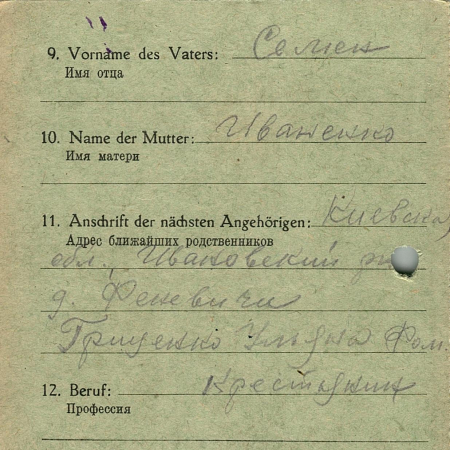 9. Vorname des Vaters: Семен
Имя отца
10. Name der Mutter: Иваненко
Имя матери
11. Anschrift der nächsten Angehörigen: Киевская
Адрес ближайших родственников
обл. Ивановский
д. Феневичи
Гриценко Ульяна Фом.
12. Beruf: Крестьянин
Профессия